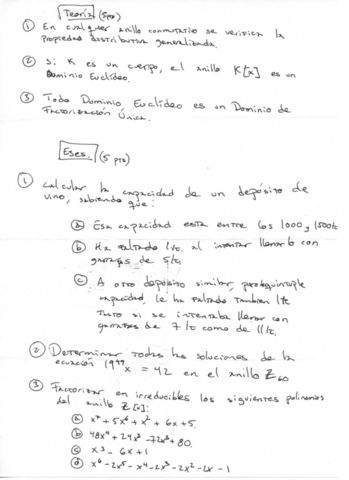 Teoría (5 pto)
① En cualquier anillo conmutativo se verifica la
propiedad distributiva generalizada.
② Si K es un cuerpo, el anillo K[x] es un
Dominio Euclídeo.
③ Todo Dominio Euclídeo es un Dominio de
Factorización Única.
Eses. (5 pto)
① Calcular la capacidad de un depósito de
vino, sabiendo que:
ⓐ Esa capacidad está entre los 1000 y 1500 lt
ⓑ Ha faltado 1 lt. al intentar llenarlo con
garrafas de 5 lt.
ⓒ A otro depósito similar, pero quíntuple
capacidad, le ha faltado también 1 lt
tanto si se intentaba llenar con
garrafas de 7 lt como de 11 lt.
② Determinar todas las soluciones de la
ecuación x = 42 en el anillo Z₆₀
③ Factorizar en irreducibles los siguientes polinomios
del anillo Z[x]:
ⓐ + x² + 6x + 5
ⓑ 48x⁴ + 24x³ - 72x² + 80
ⓒ x³ - 6x + 1
ⓓ x⁶ - 2x⁵ - x⁴ - 2x³ - 2x² - - 1